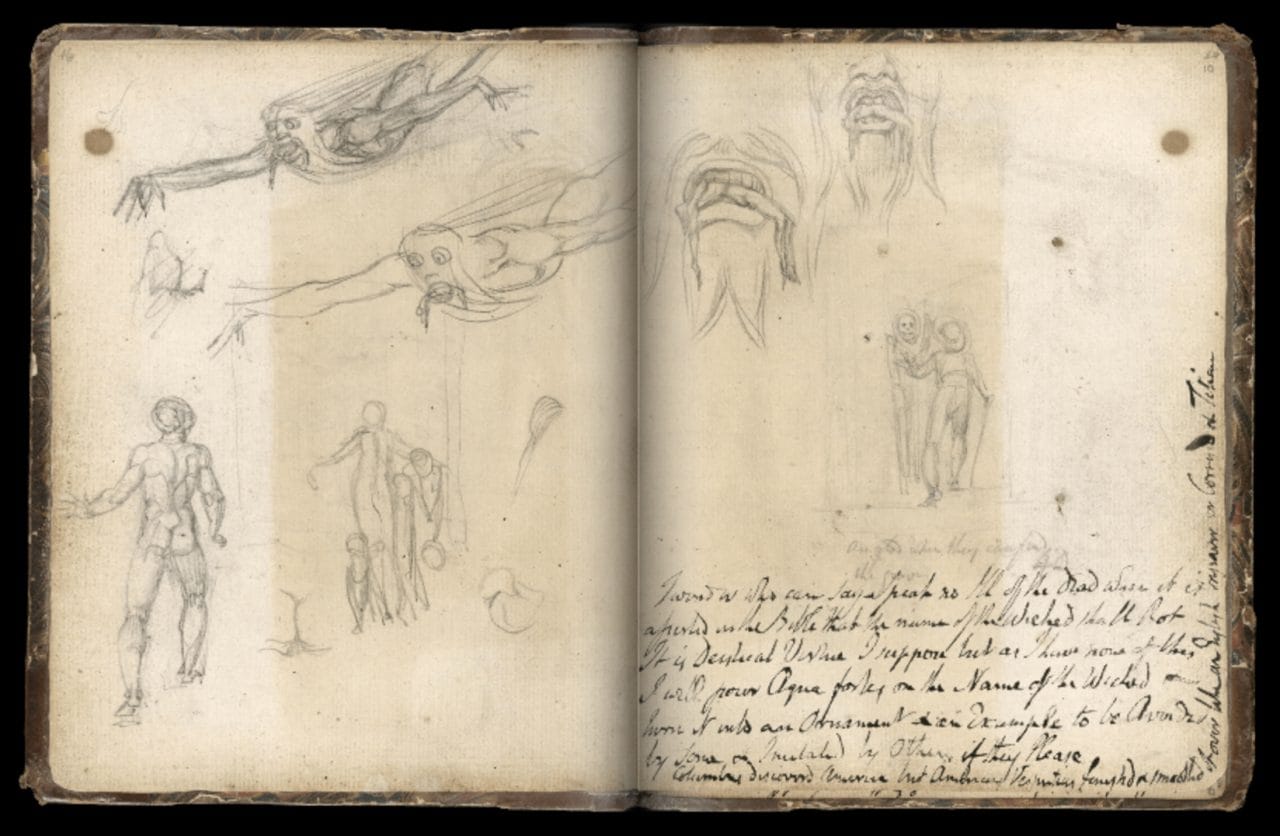 10
angels
I wonder who can say Speak no Ill of the Dead when it is
asserted in the Bible that the name of the Wicked shall Rot
It is Deistical Virtue I suppose but as I have none of this
I will pour Aqua fortis on the Name of the Wicked &
turn it into an Ornament & an Example to be Avoided
by Some & Imitated by Others if they Please
Columbus discoverd America but Americus Vesputius finishd & smoothd
it over like an English Engraver or Corregio or Titian